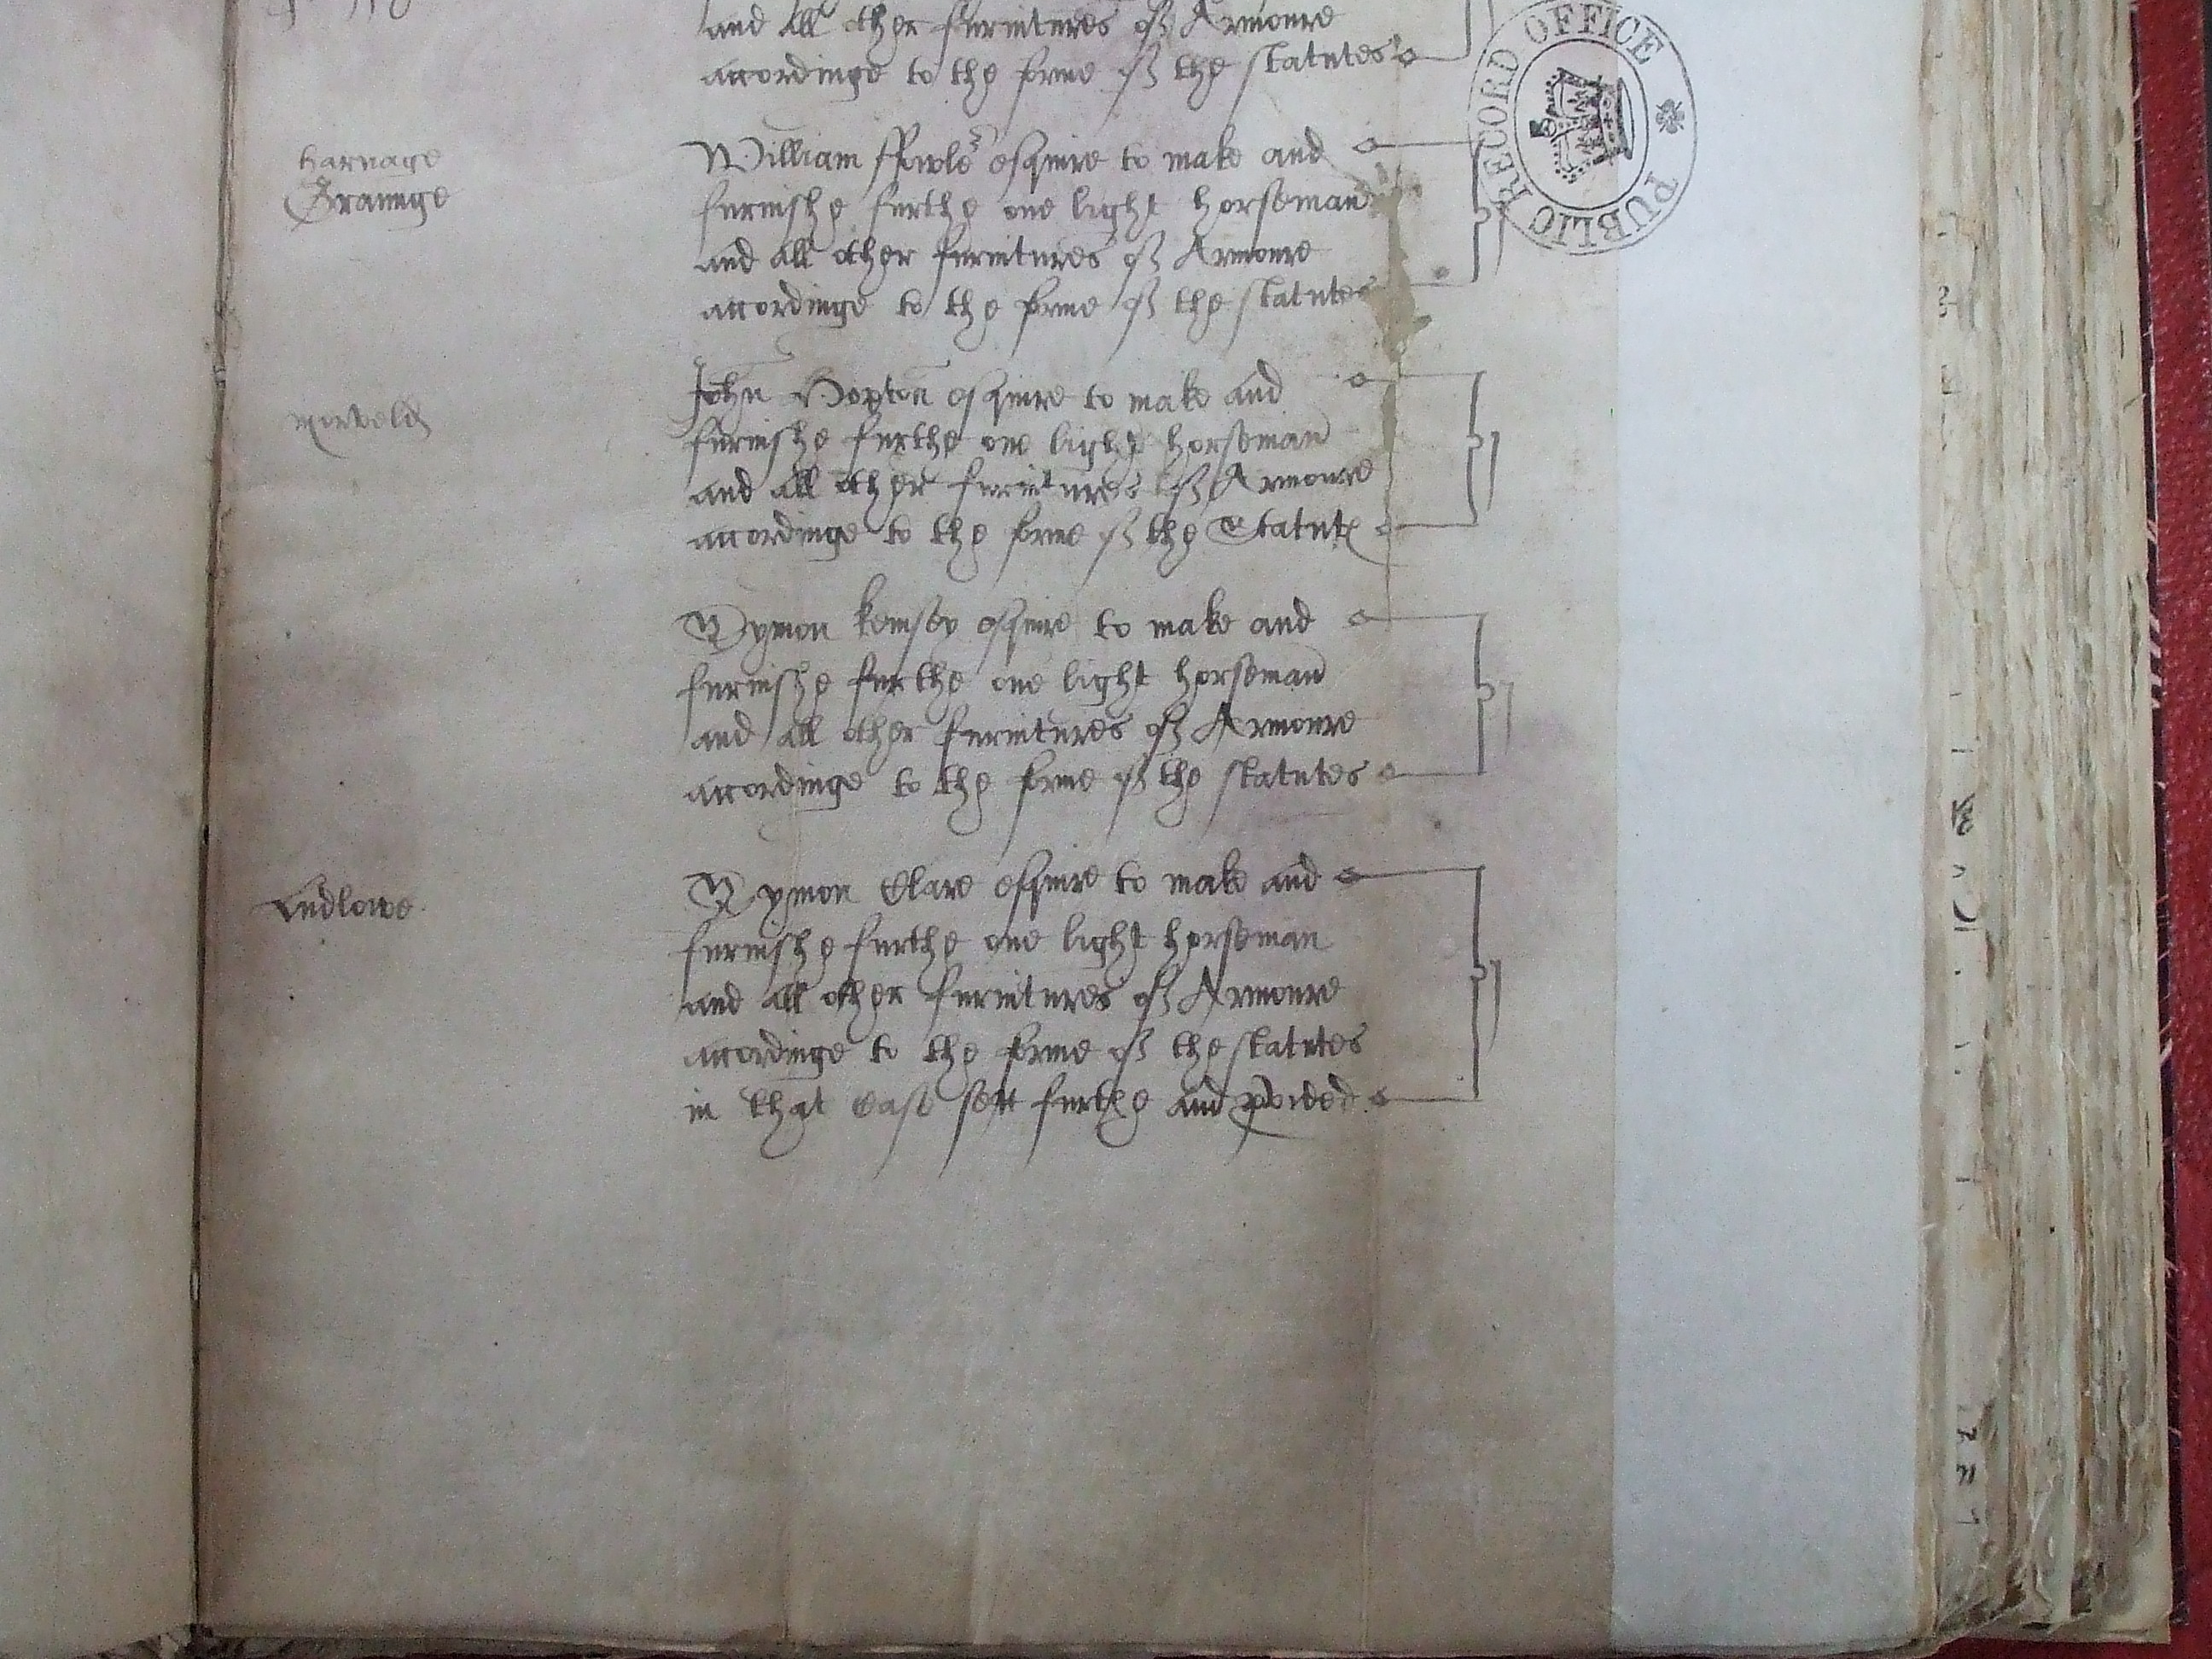 and all other furnitures of Armoure
accordinge to the forme of the statutes
harnage
Graunge
William ffowler esquire to make and
furnishe furthe one light horseman
and all other furnitures of Armoure
accordinge to the forme of the statutes
John Hopton esquire to make and
furnishe furthe one light horseman
and all other furnitures of Armoure
accordinge to the forme of the Statutes
Symon kemsey esquire to make and
furnishe furthe one light horseman
and all other furnitures of Armoure
accordinge to the forme of the statutes
Ludlowe
Symon Clare esquire to make and
furnishe furthe one light horseman
and all other furnitures of Armoure
accordinge to the forme of the statutes
in that case sett furthe and provided
PUBLIC RECORD OFFICE